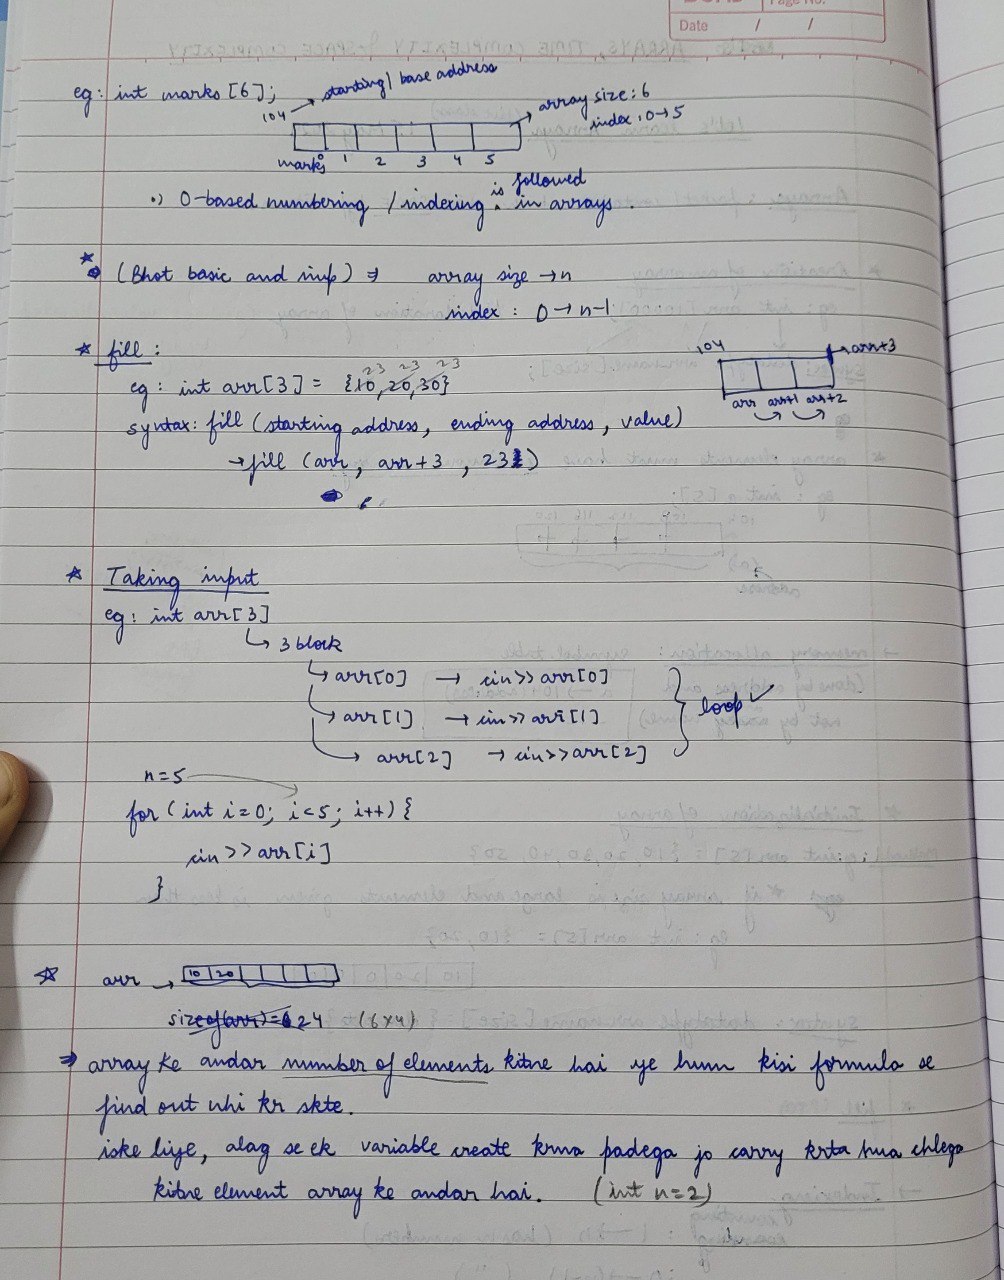 Page No.
Date / /
eg: int marks [6];
starting/ base address
104
array size: 6
index: 0→5
marks 0 1 2 3 4 5
•) 0-based numbering /indexing is followed in arrays.
* (Bhot basic and imp) ⇒ array size → n
index : 0 → n-1
* fill :
104 arr+3
23 23 23
eg: int arr[3] = {10,20,30}
arr arr+1 arr+2
syntax: fill (starting address, ending address, value)
→ fill (arr, arr+3 , 23)
* Taking input
eg: int arr[3]
↳ 3 block
↳ arr[0] → cin>> arr[0]
→ arr[1] → cin>> arr[1]
→ arr[2] → cin>>arr[2]
loop ✓
n=5
for (int i=0; i<5; i++) {
cin >> arr[i]
}
* arr → 10 20
sizeof(arr)= 24 (6x4)
⇒ array ke andar number of elements kitne hai ye hum kisi formula se
find out nhi kr skte.
iske liye, alag se ek variable create krna padega jo carry krta hua chlega
kitne element array ke andar hai. (int n=2)